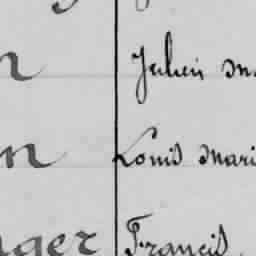 n Julien Ma
n Louis Mari
ger Francis